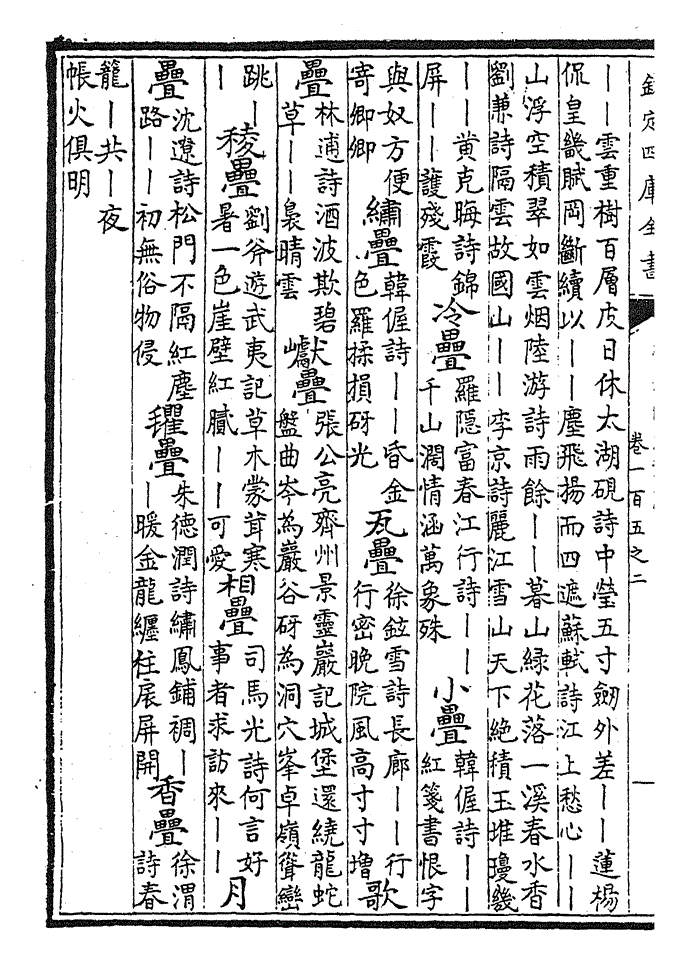 欽定四庫全書
卷一百五之二
——雲重樹百層皮日休太湖硯詩中瑩五寸劒外差——蓮楊
侃皇畿賦岡斷續以——塵飛揚而四遮蘇軾詩江上愁心——
山浮空積翠如雲烟陸游詩雨餘——暮山緑花落一溪春水香
劉兼詩隔雲故國山——李京詩麗江雪山天下絶積玉堆瓊幾
——黄克晦詩錦
屏——護殘霞
冷疊
羅隠富春江行詩——
千山濶情涵萬象殊
小疊
韓偓詩——
紅箋書恨字
與奴方便
寄卿卿
繡疊
韓偓詩——昏金
色羅揉損砑光
瓦疊
徐鉉雪詩長廊——行
行密晚院風高寸寸增
歌
疊
林逋詩酒波欺碧
草——裊晴雲
巘疊
張公亮齊州景靈巖記城堡還繞龍蛇
盤曲岑為巖谷砑為洞穴峯卓嶺聳巒
跳—
—
稜疊
劉斧遊武夷記草木蒙茸寒
暑一色崖壁紅膩——可愛
相疊
司馬光詩何言好
事者求訪來——
月
疊
沈遼詩松門不隔紅塵
路——初無俗物侵
氍疊
朱德潤詩繡鳳鋪裯—
—暖金龍纏柱扆屏開
香疊
徐渭
詩春
籠—共—夜
帳火俱明